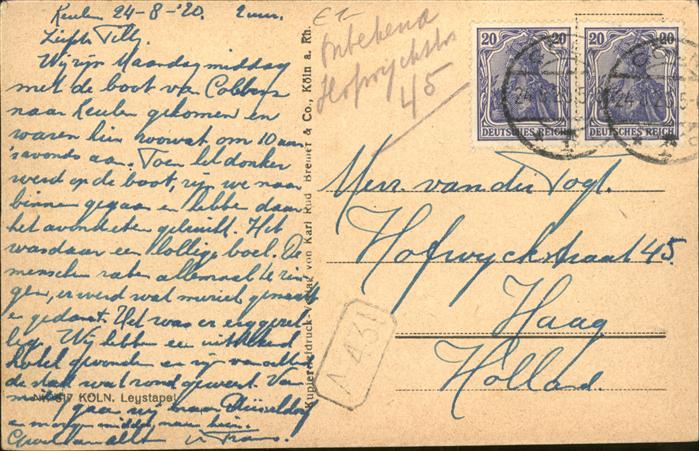 Keulen 24-8-'20. 2 uur.
Liefste Tilly,
Wij zijn Maandag middag
met de boot van Coblenz
naar Keulen gekomen en
waren hier zoowat om 10 uur
's avonds aan. Toen het donker
werd op de boot, zijn we naar
binnen gegaan en hebben daar
het avondeten gebruikt. Het
was daar een lollige boel. De
menschen zaten allemaal te zin-
gen, er werd wat muziek gemaakt
en gedanst. Het was er erg gezel-
lig. Wij hebben een uitstekend
hotel gevonden en zijn vanochtend
de stad wat rond geweest. Van
gaan wij naar Düsseldorf
en morgen middag naar huis.
allen
Frans.
KÖLN. Leystapel
Karl Rud. Bremer & Co. Köln a. Rh.
Onbekend
Hofwyckstr
45
20 20 20 20
DEUTSCHES REICH DEUTSCHES REICH
Mevr. van der Vogt.
Hofwyckstraat 45.
Haag
Holland.
A 431